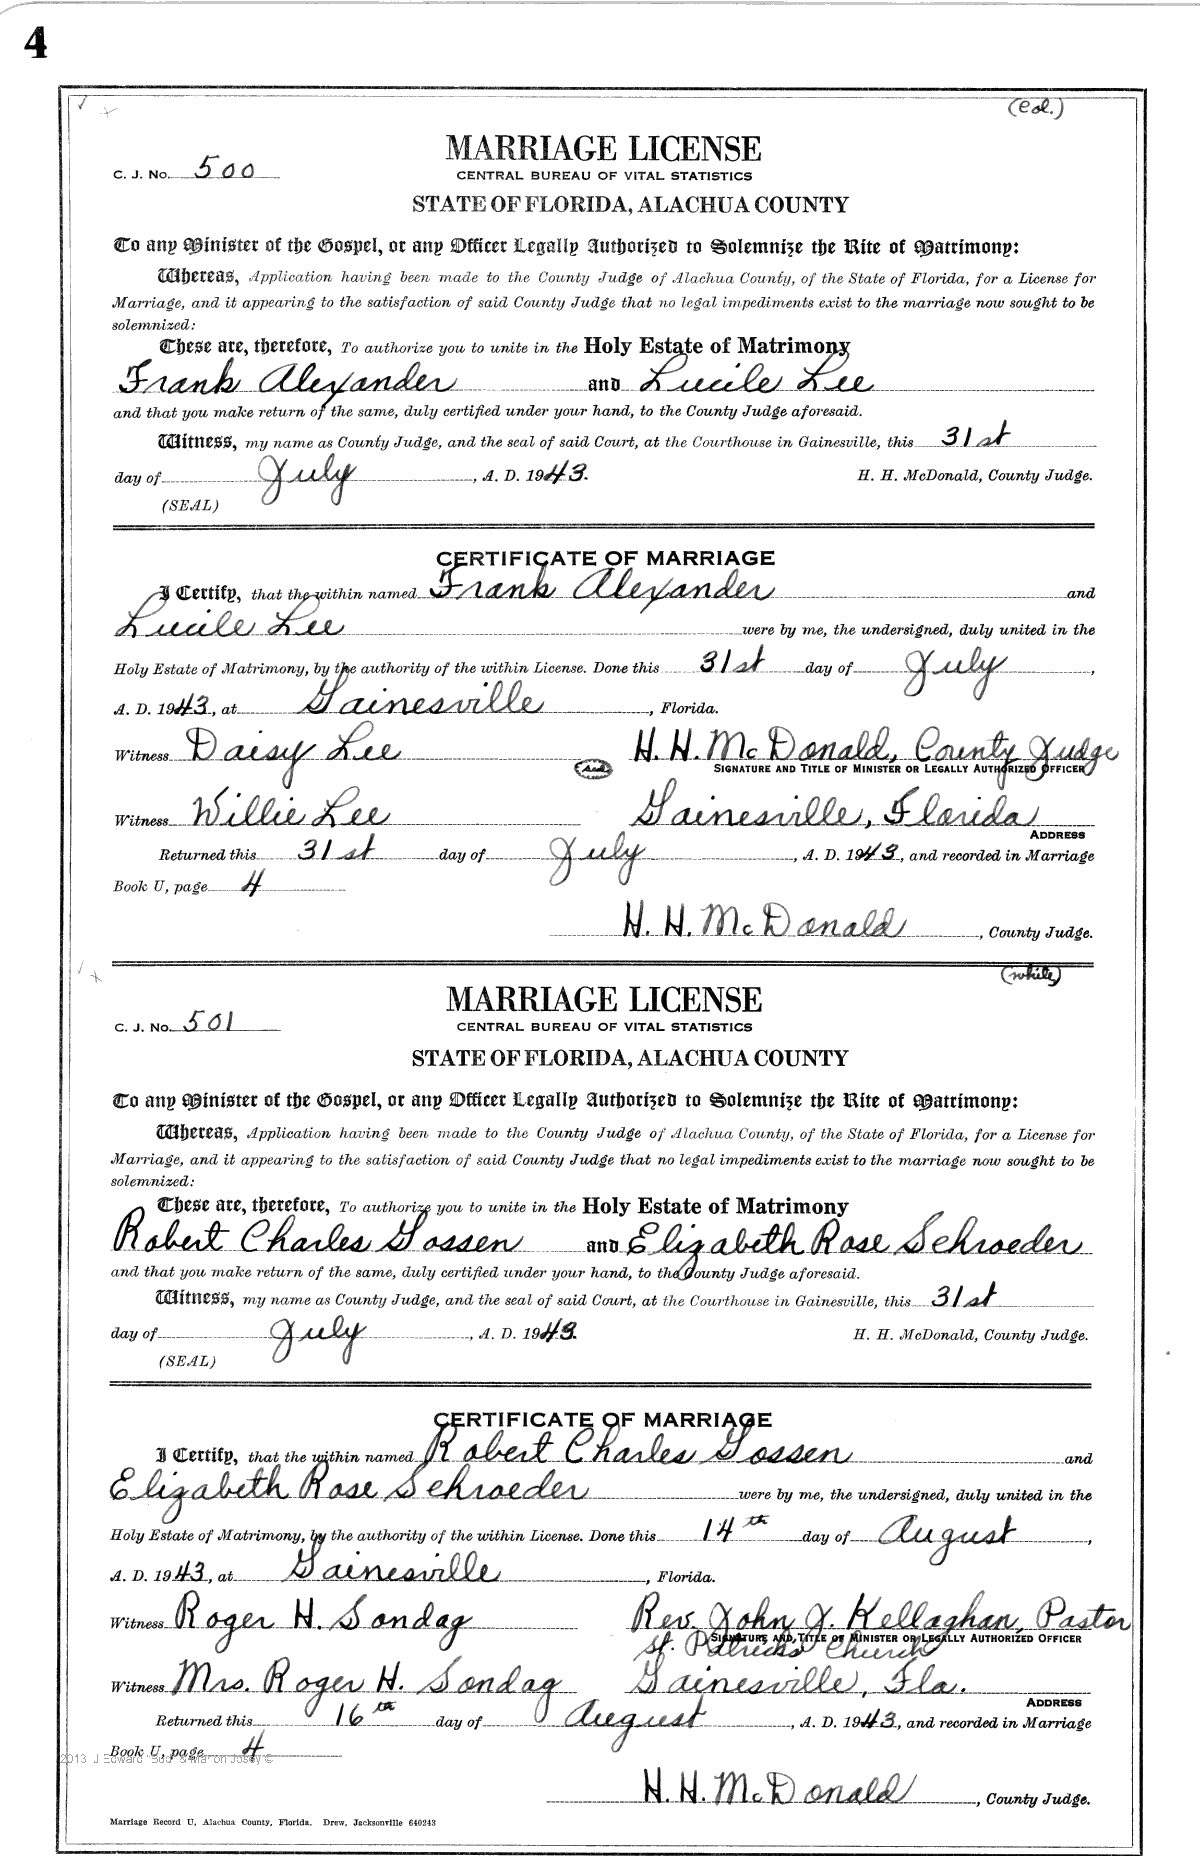 4
(Col.)
MARRIAGE LICENSE
C. J. No. 500
CENTRAL BUREAU OF VITAL STATISTICS
STATE OF FLORIDA, ALACHUA COUNTY
To any Minister of the Gospel, or any Officer Legally Authorized to Solemnize the Rite of Matrimony:
Whereas, Application having been made to the County Judge of Alachua County, of the State of Florida, for a License for
Marriage, and it appearing to the satisfaction of said County Judge that no legal impediments exist to the marriage now sought to be
solemnized:
These are, therefore, To authorize you to unite in the Holy Estate of Matrimony
Frank Alexander and Lucile Lee
and that you make return of the same, duly certified under your hand, to the County Judge aforesaid.
Witness, my name as County Judge, and the seal of said Court, at the Courthouse in Gainesville, this 31st
day of July, A. D. 1943. H. H. McDonald, County Judge.
(SEAL)
CERTIFICATE OF MARRIAGE
I Certify, that the within named Frank Alexander and
Lucile Lee were by me, the undersigned, duly united in the
Holy Estate of Matrimony, by the authority of the within License. Done this 31st day of July,
A. D. 1943, at Gainesville, Florida.
Witness Daisy Lee H. H. McDonald, County Judge
SIGNATURE AND TITLE OF MINISTER OR LEGALLY AUTHORIZED OFFICER
Witness Willie Lee Gainesville, Florida
ADDRESS
Returned this 31st day of July, A. D. 1943, and recorded in Marriage
Book U, page 4
H. H. McDonald, County Judge.
(white)
MARRIAGE LICENSE
C. J. No. 501
CENTRAL BUREAU OF VITAL STATISTICS
STATE OF FLORIDA, ALACHUA COUNTY
To any Minister of the Gospel, or any Officer Legally Authorized to Solemnize the Rite of Matrimony:
Whereas, Application having been made to the County Judge of Alachua County, of the State of Florida, for a License for
Marriage, and it appearing to the satisfaction of said County Judge that no legal impediments exist to the marriage now sought to be
solemnized:
These are, therefore, To authorize you to unite in the Holy Estate of Matrimony
Robert Charles Gossen and Elizabeth Rose Schroeder
and that you make return of the same, duly certified under your hand, to the County Judge aforesaid.
Witness, my name as County Judge, and the seal of said Court, at the Courthouse in Gainesville, this 31st
day of July, A. D. 1943. H. H. McDonald, County Judge.
(SEAL)
CERTIFICATE OF MARRIAGE
I Certify, that the within named Robert Charles Gossen and
Elizabeth Rose Schroeder were by me, the undersigned, duly united in the
Holy Estate of Matrimony, by the authority of the within License. Done this 14th day of August,
A. D. 1943, at Gainesville, Florida.
Witness Roger H. Sondag Rev. John J. Kellaghan, Pastor
SIGNATURE AND TITLE OF MINISTER OR LEGALLY AUTHORIZED OFFICER
St. Patricks Church
Witness Mrs. Roger H. Sondag Gainesville, Fla.
ADDRESS
Returned this 16th day of August, A. D. 1943, and recorded in Marriage
Book U, page 4
H. H. McDonald, County Judge.
Marriage Record U, Alachua County, Florida. Drew, Jacksonville 640243